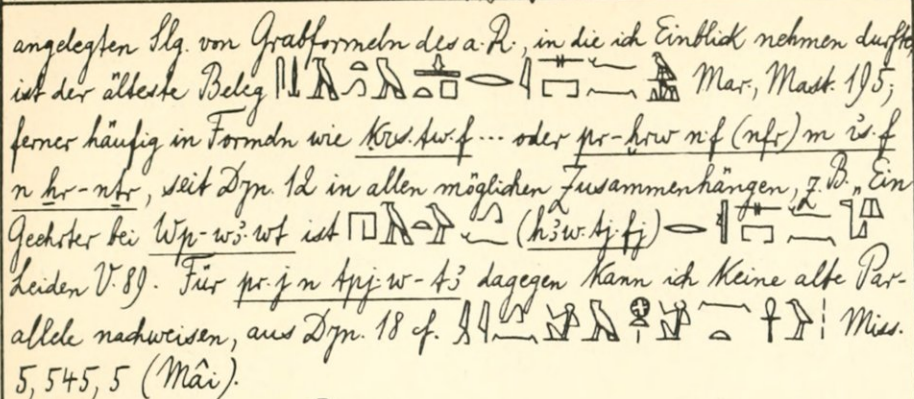 angelegten Slg. von Grabformeln des a. R., in die ich Einblick nehmen durfte,
ist der älteste Beleg Mar., Mast. 195;
ferner häufig in Formeln wie ḳrs.tw.f ... oder pr-ḫrw n.f (nfr) m ı͗s.f
n ẖr-nṯr, seit Dyn. 12 in allen möglichen Zusammenhängen, z. B. „Ein
Geehrter bei Wp-wꜣ.wt ist (hꜣw.tj.fj)
Leiden V. 89. Für pr.j n tpj.w-tꜣ dagegen kann ich keine alte Par-
allele nachweisen, aus Dyn. 18 cf. Miss.
5, 545, 5 (Mâi).